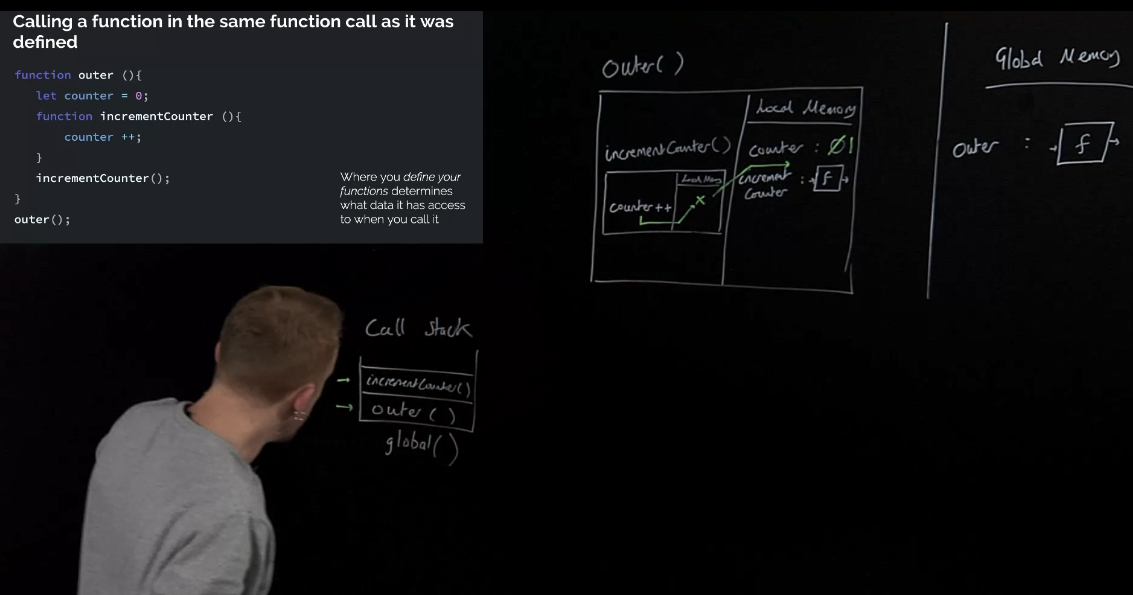 Calling a function in the same function call as it was
defined
function outer (){
let counter = 0;
function incrementCounter (){
counter ++;
}
incrementCounter();
}
outer();
Where you define your
functions determines
what data it has access
to when you call it
Outer( )
Local Memory
incrementCounter( )
counter : 0 1
Local Mem
counter++
x
increment
counter : f
Global Memory
Outer : f
Call Stack
incrementCounter( )
outer ( )
global( )